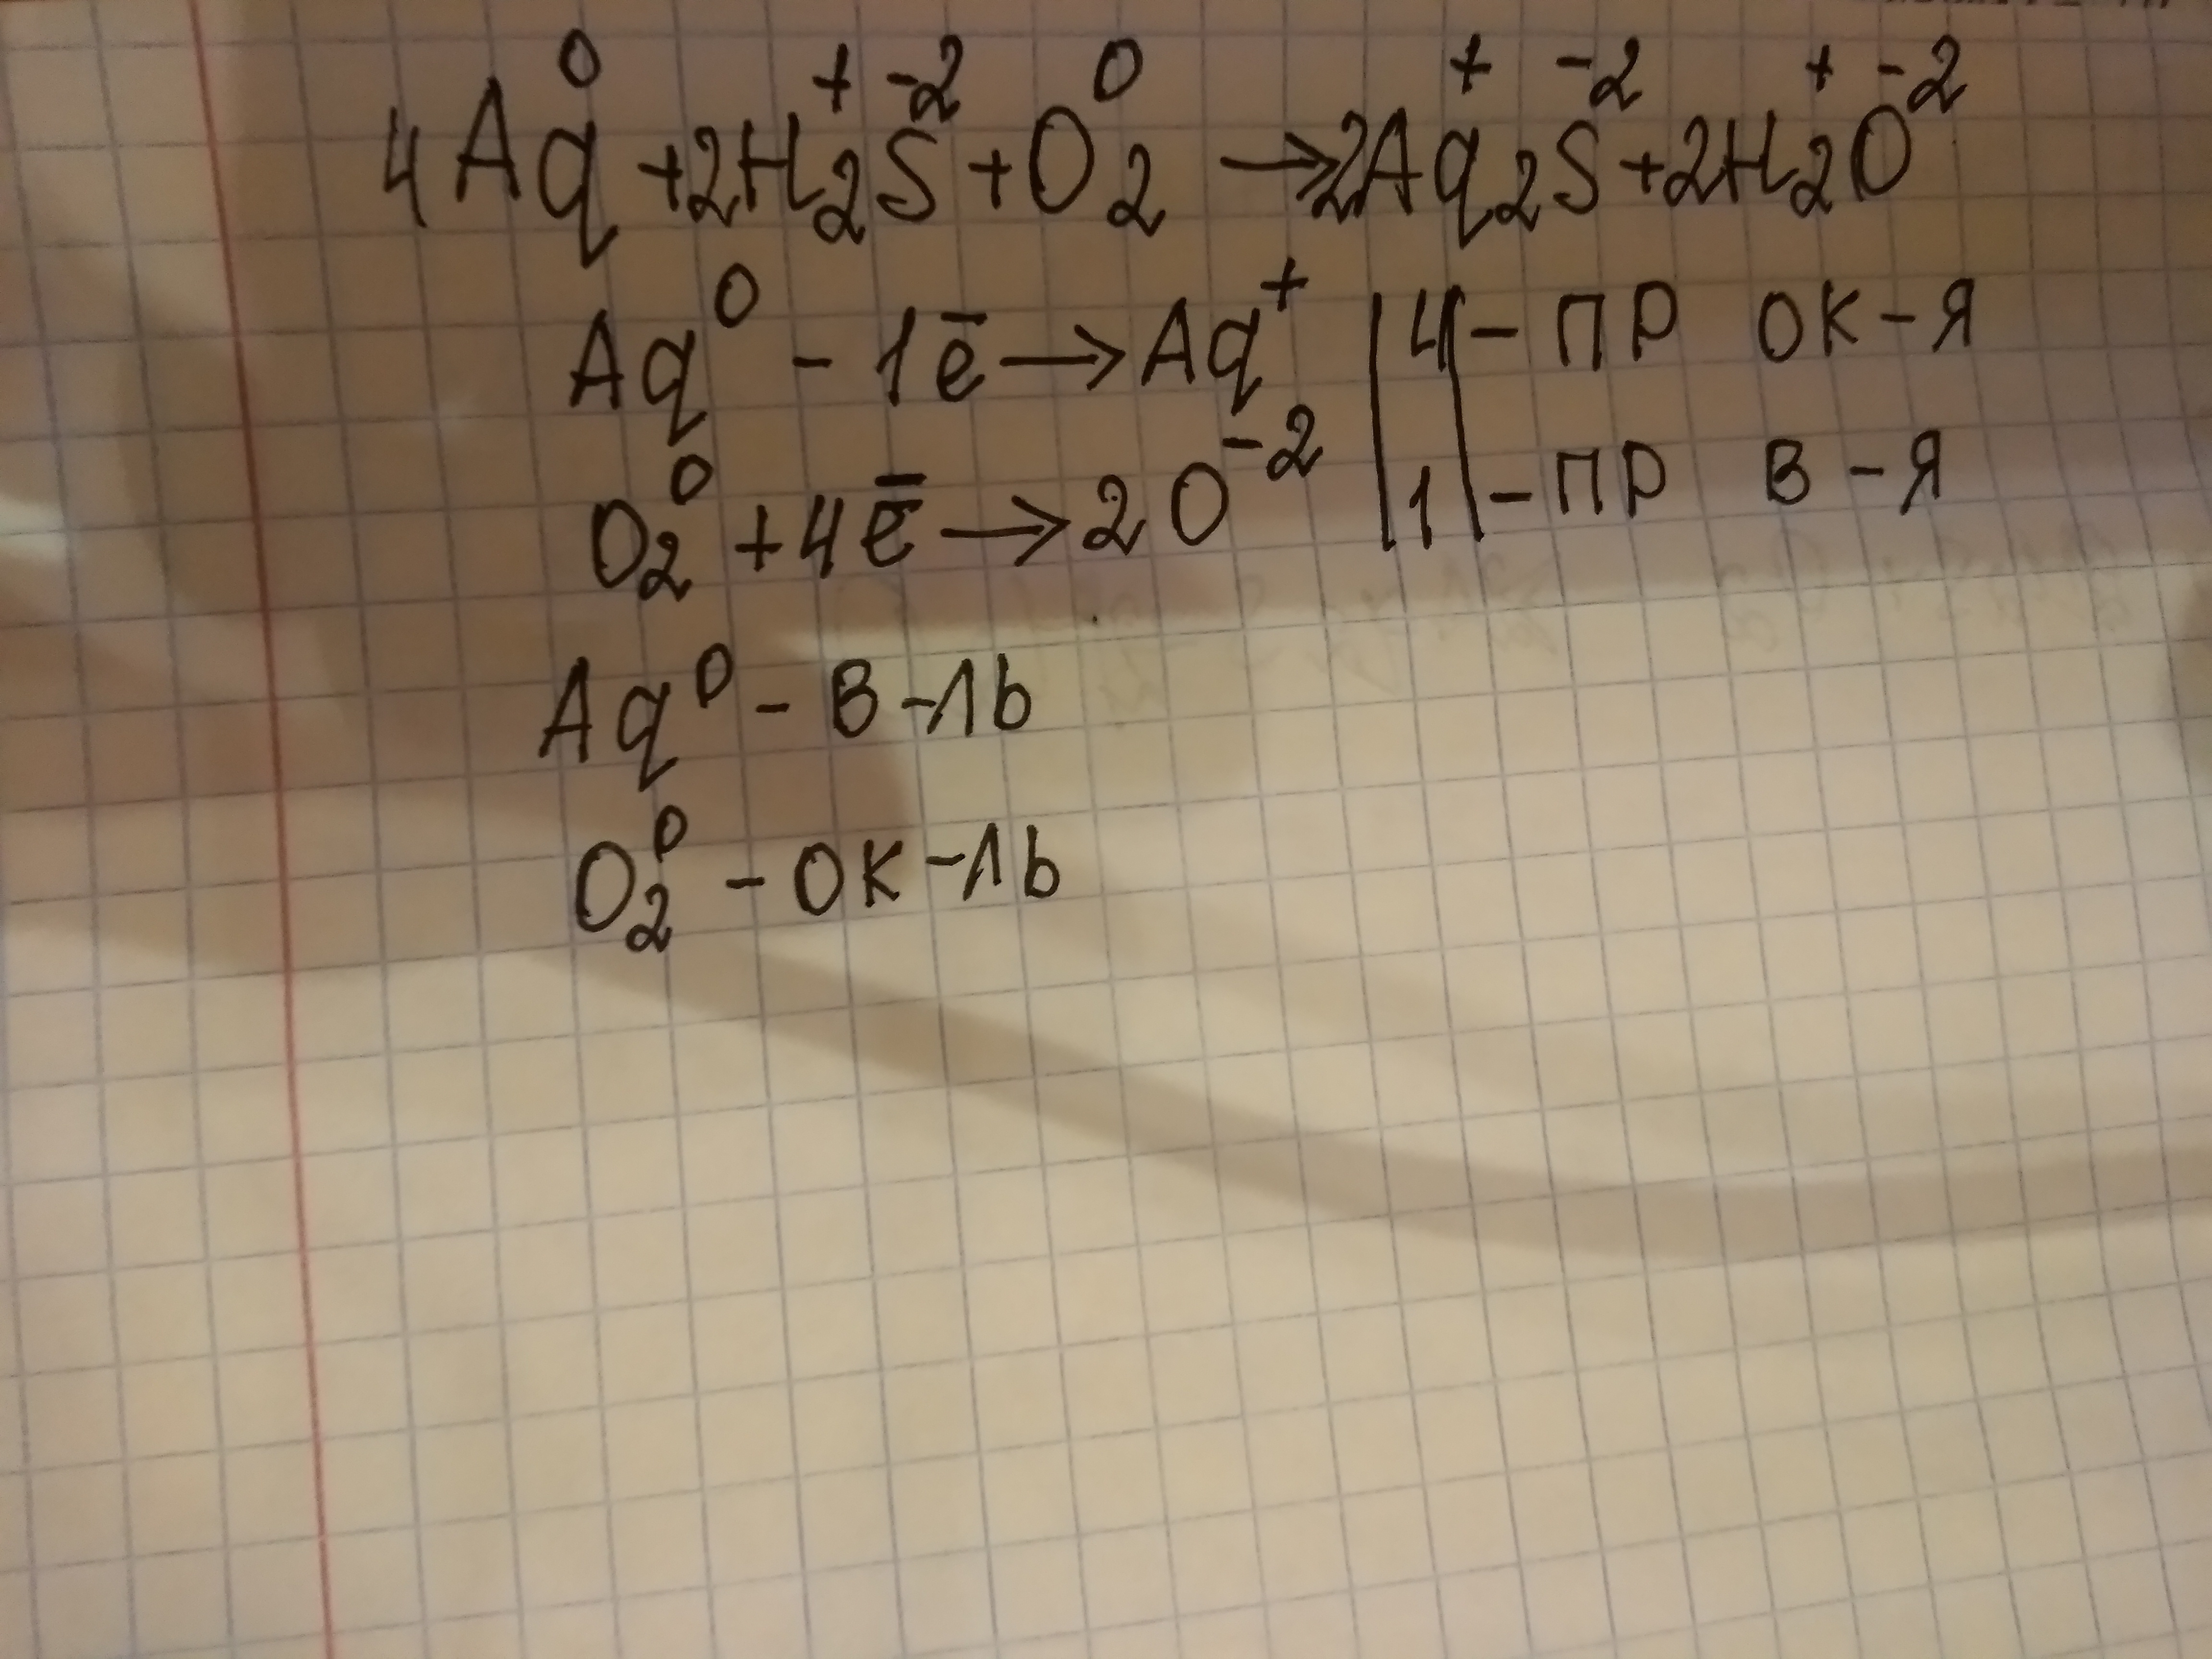 4Ag⁰ + 2H₂⁺S⁻² + O₂⁰ → 2Ag₂⁺S⁻² + 2H₂⁺O⁻²
Ag⁰ - 1ē → Ag⁺ | 4 | - ПР ОК-Я
O₂⁰ + 4ē → 2O⁻² | 1 | - ПР В-Я
Ag⁰ - В-ЛЬ
O₂⁰ - ОК-ЛЬ